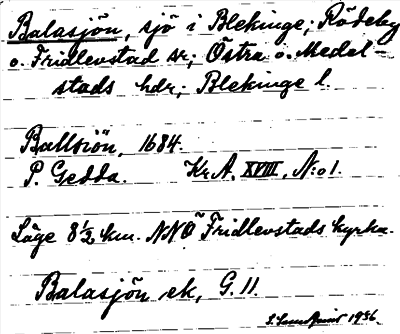 Balasjön, sjö i Blekinge; Rödeby
o. Fridlevstad sr; Östra o. Medel-
stads hdr; Blekinge l.
Ballsiön, 1684.
P. Gedda. Kr. A. XVIII, N:o 1.
Läge 8 1/2 km. NNÖ Fridlevstads kyrka.
Balasjön ek, G. 11.
1936.